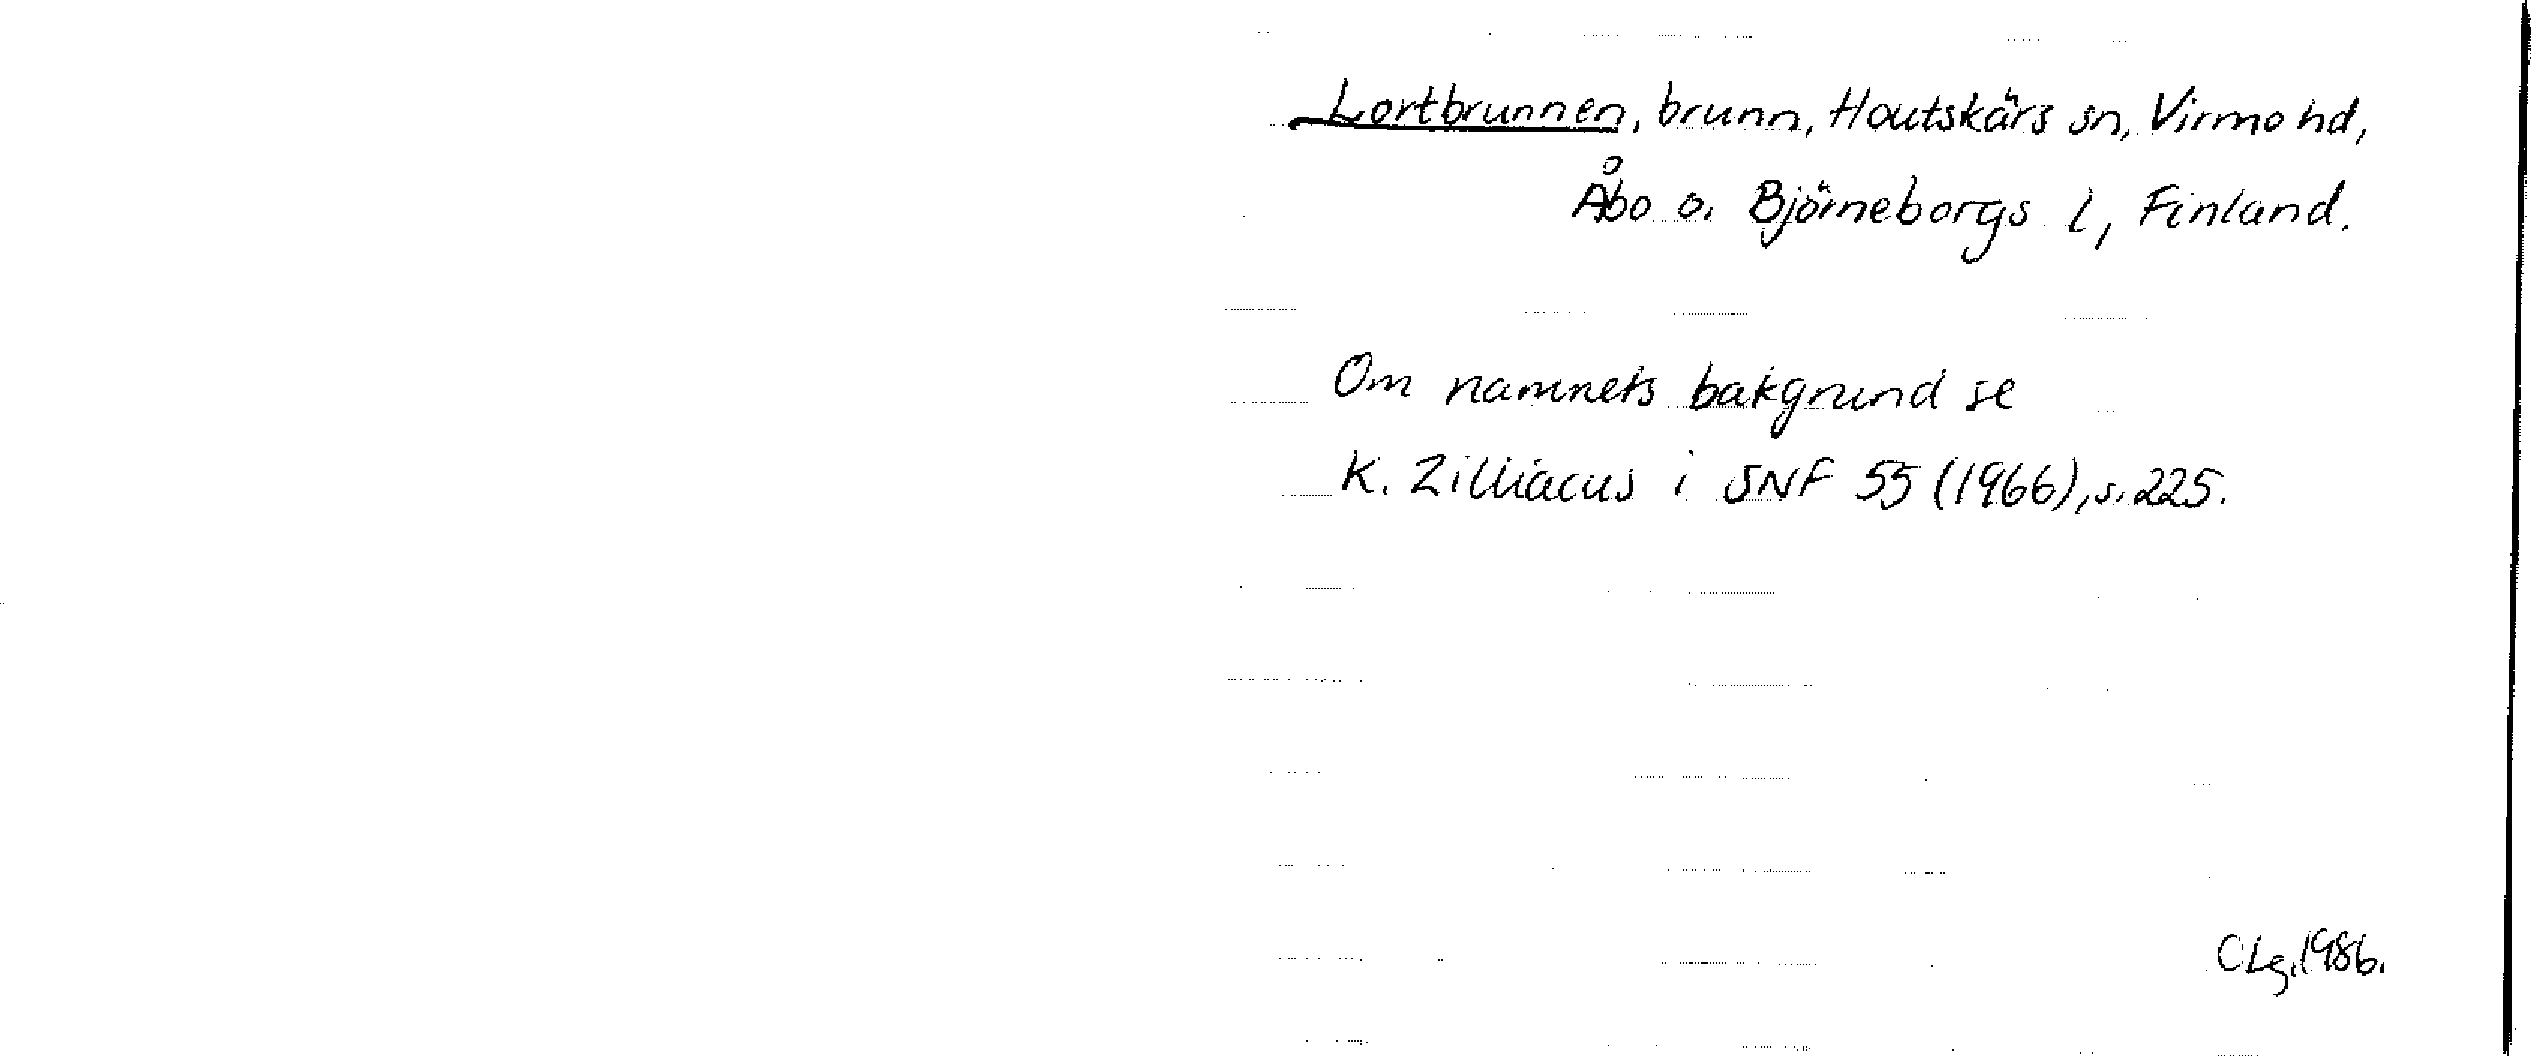 Lortbrunnen, brunn, Houtskärs sn, Virmo hd,
Åbo o. Björneborgs l, Finland.
Om namnets bakgrund se
K. Zilliacus i SNF 55 (1966), s. 225.
CLg. 1986.